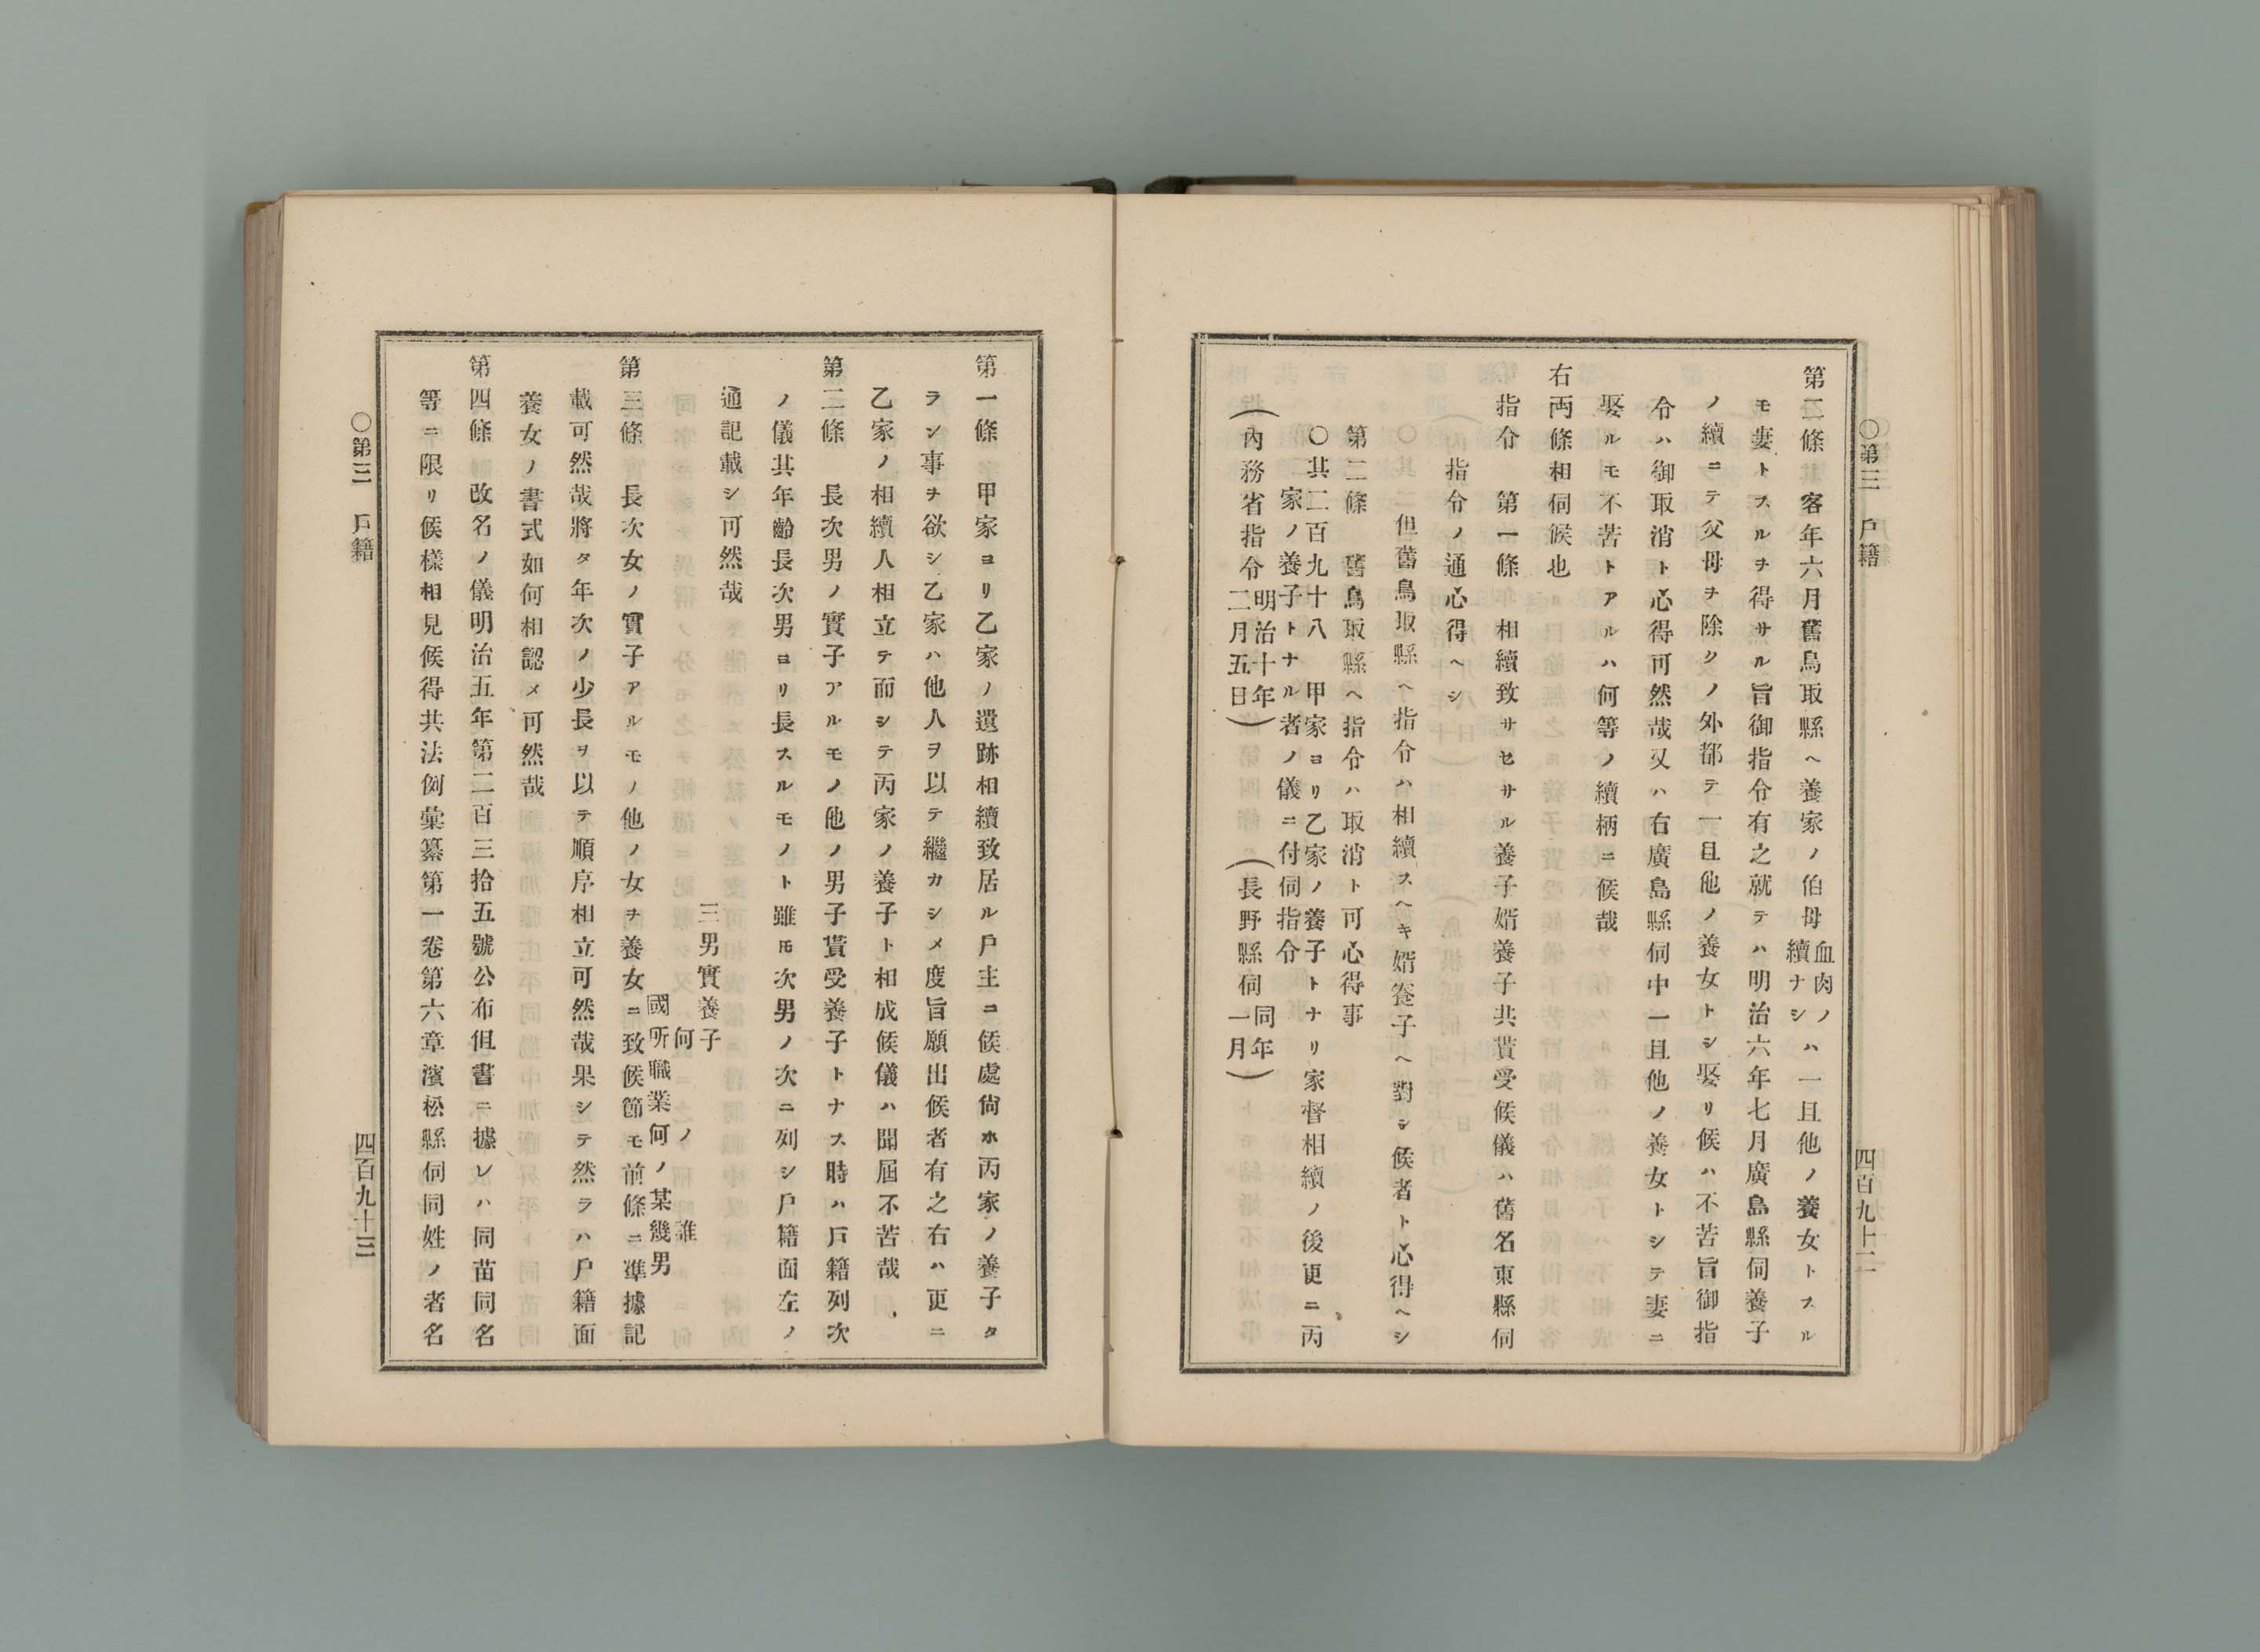 ○第三　戸籍
四百九十二
第二條　客年六月舊鳥取縣ヘ養家ノ伯母血肉ノ續ナシハ一旦他ノ養女トスル
モ妻トスルヲ得サル旨御指令有之就テハ明治六年七月廣島縣伺養子
ノ續ニテ父母ヲ除クノ外都テ一旦他ノ養女トシ娶リ候ハ不苦旨御指
令ハ御取消ト心得可然哉又ハ右廣島縣伺中一旦他ノ養女トシテ妻ニ
娶ルモ不苦トアルハ何等ノ續柄ニ候哉
右両條相伺候也
指令　第一條相續致サセサル養子婿養子共貰受候儀ハ舊名東縣伺
指令ノ通心得ヘシ
但舊鳥取縣ヘ指令ハ相續スヘキ婿養子ヘ對シ候者ト心得ヘシ
第二條　舊鳥取縣ヘ指令ハ取消ト可心得事
○其二百九十八　甲家ヨリ乙家ノ養子トナリ家督相續ノ後更ニ丙
家ノ養子トナル者ノ儀ニ付伺指令
（長野縣伺同年一月）
（內務省指令明治十年二月五日）
第一條　甲家ヨリ乙家ノ遺跡相續致居ル戸主ニ候處尙ホ丙家ノ養子タ
ラン事ヲ欲シ乙家ハ他人ヲ以テ繼カシメ度旨願出候者有之右ハ更ニ
乙家ノ相續人相立テ而シテ丙家ノ養子ト相成候儀ハ聞屆不苦哉
第二條　長次男ノ實子アルモノ他ノ男子貰受養子トナス時ハ戸籍列次
ノ儀其年齡長次男ヨリ長スルモノト雖モ次男ノ次ニ列シ戸籍面左ノ
通記載シ可然哉
三男實養子
何ノ誰
國所職業何ノ某幾男
第三條　長次女ノ實子アルモノ他ノ女ヲ養女ニ致候節モ前條ニ準據記
載可然哉將タ年次ノ少長ヲ以テ順序相立可然哉果シテ然ラハ戸籍面
養女ノ書式如何相認メ可然哉
第四條　改名ノ儀明治五年第二百三拾五號公布但書ニ據レハ同苗同名
等ニ限リ候樣相見候得共法例彙纂第一卷第六章濱松縣伺同姓ノ者名
○第三　戸籍
四百九十三